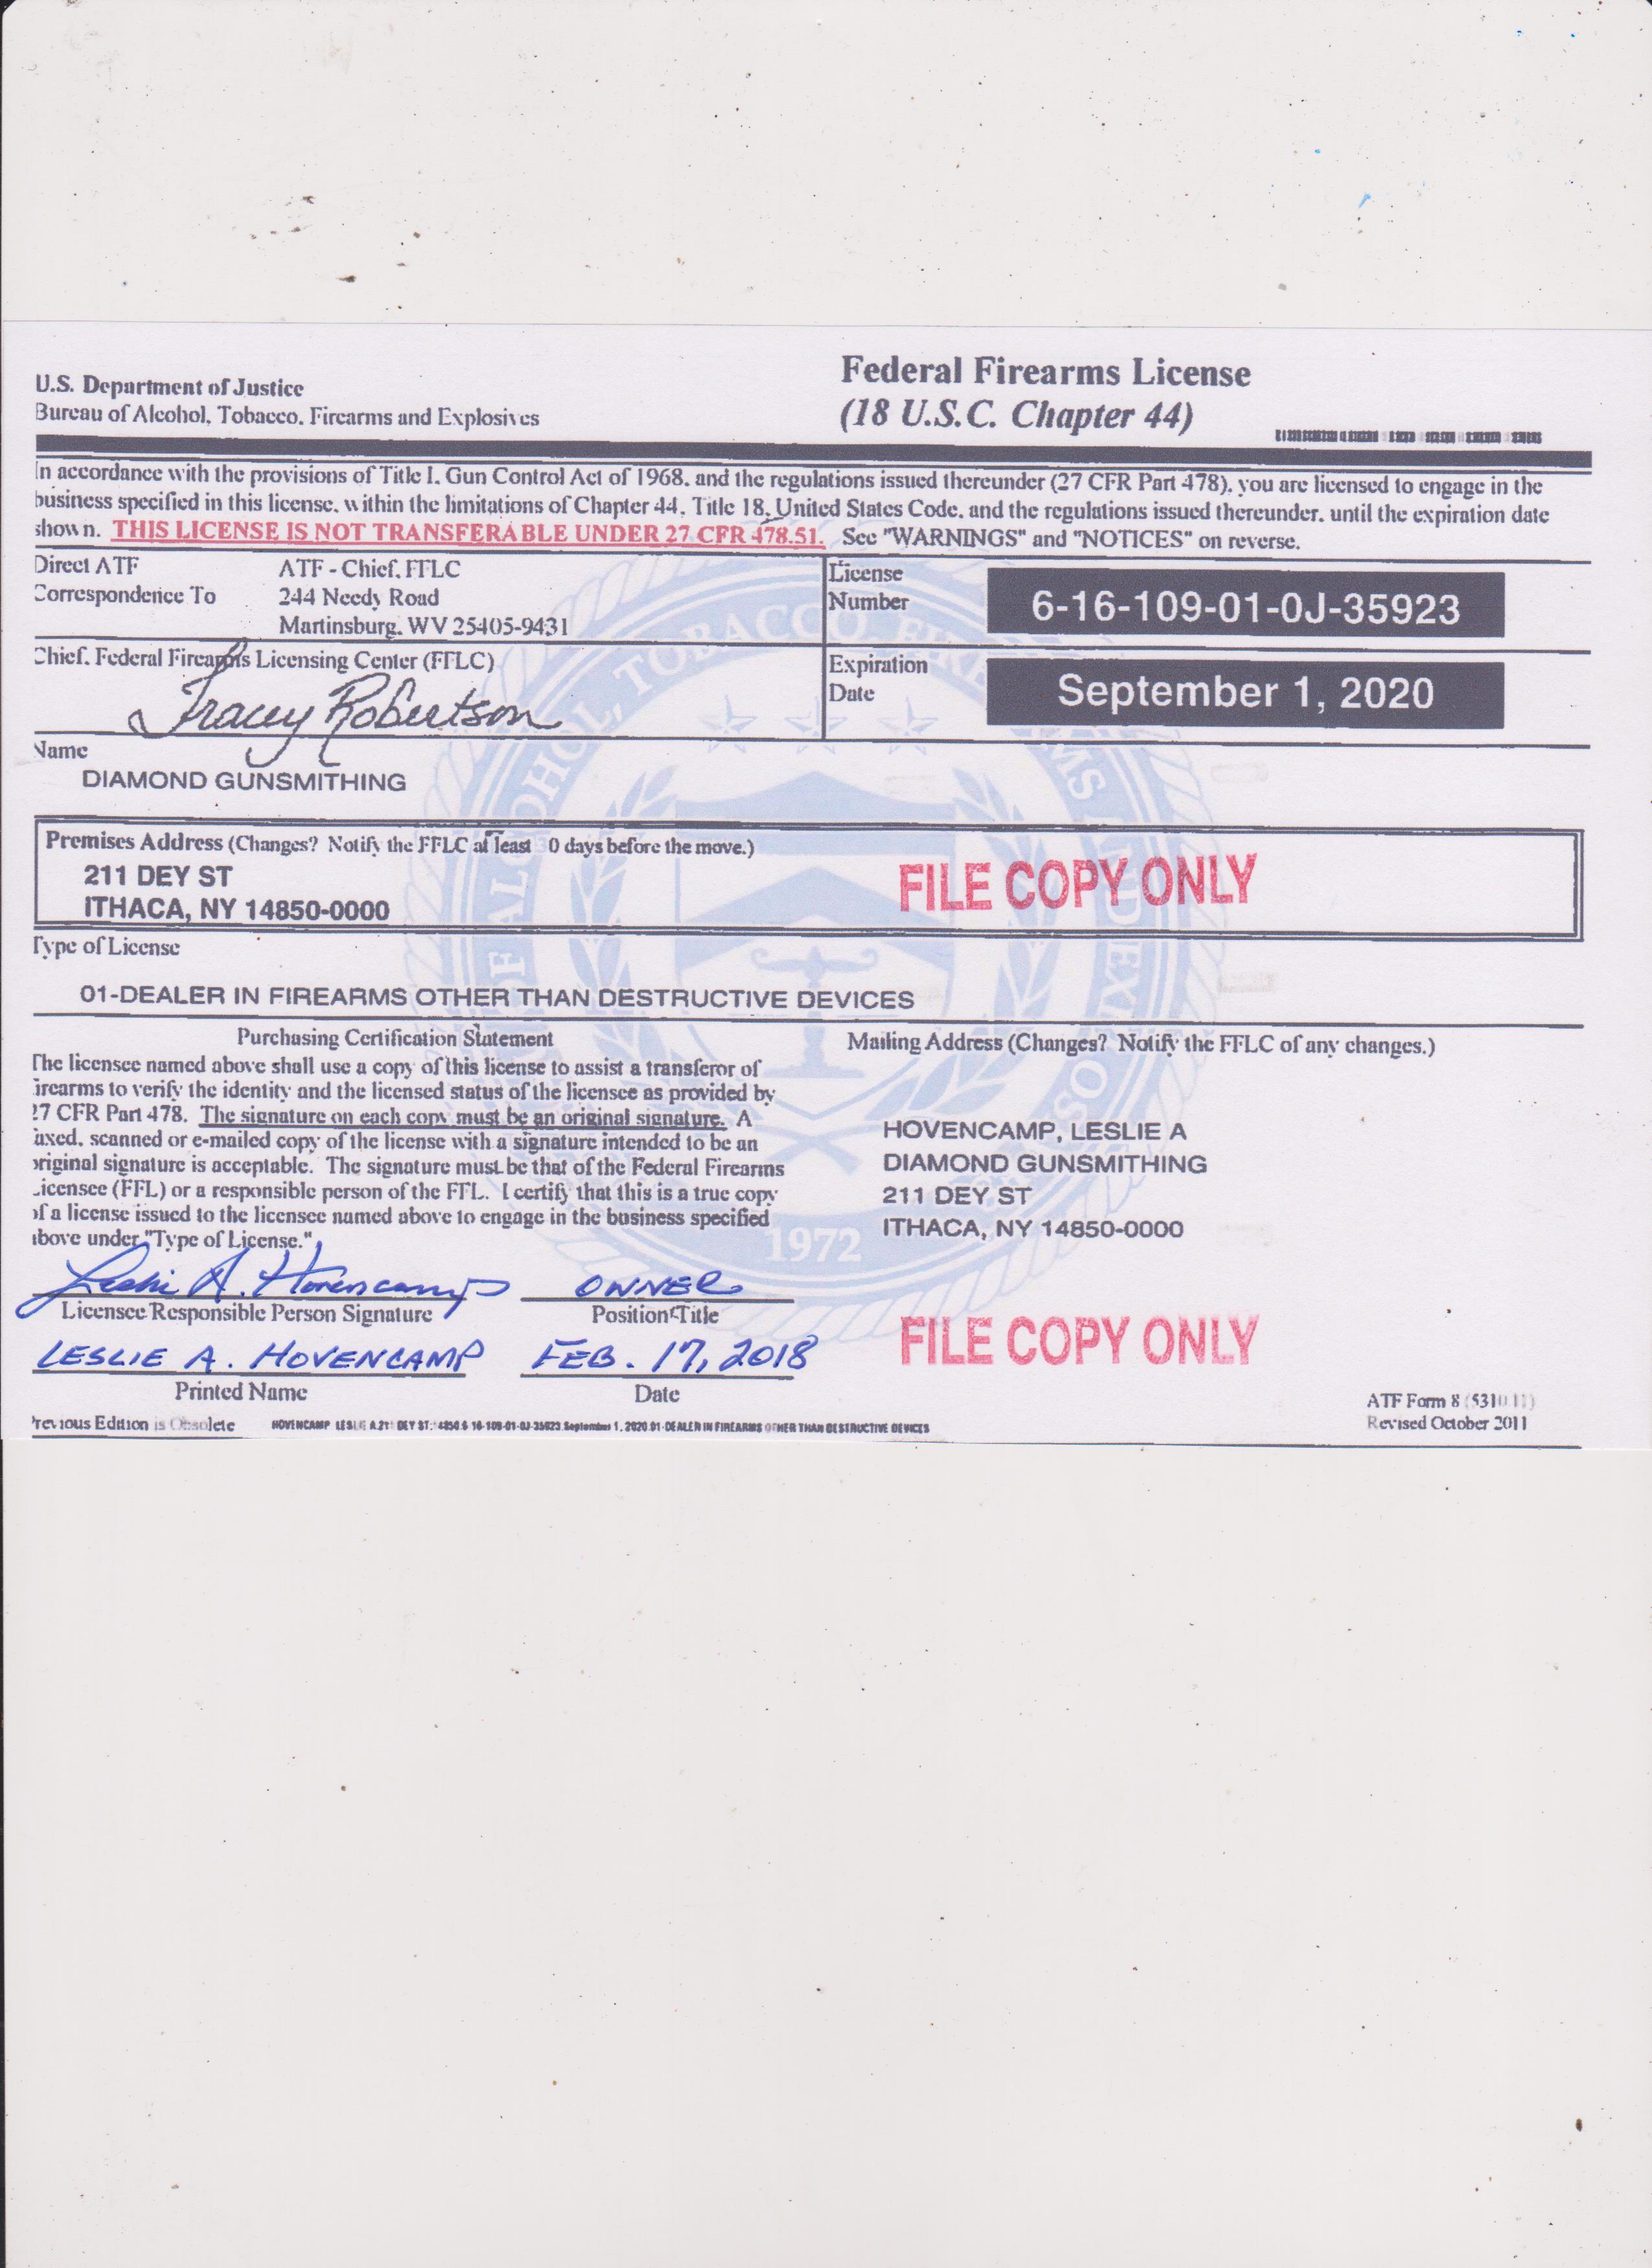 U.S. Department of Justice
Bureau of Alcohol, Tobacco, Firearms and Explosives
Federal Firearms License
(18 U.S.C. Chapter 44)
In accordance with the provisions of Title I, Gun Control Act of 1968, and the regulations issued thereunder (27 CFR Part 478), you are licensed to engage in the
business specified in this license, within the limitations of Chapter 44, Title 18, United States Code, and the regulations issued thereunder, until the expiration date
shown. THIS LICENSE IS NOT TRANSFERABLE UNDER 27 CFR 478.51. See "WARNINGS" and "NOTICES" on reverse.
Direct ATF
Correspondence To
ATF - Chief, FFLC
244 Needy Road
Martinsburg, WV 25405-9431
License
Number
6-16-109-01-0J-35923
Chief, Federal Firearms Licensing Center (FFLC)
Tracey Robertson
Expiration
Date
September 1, 2020
Name
DIAMOND GUNSMITHING
Premises Address (Changes? Notify the FFLC at least 30 days before the move.)
211 DEY ST
ITHACA, NY 14850-0000
FILE COPY ONLY
Type of License
01-DEALER IN FIREARMS OTHER THAN DESTRUCTIVE DEVICES
Purchasing Certification Statement
The licensee named above shall use a copy of this license to assist a transferor of
irearms to verify the identity and the licensed status of the licensee as provided by
27 CFR Part 478. The signature on each copy must be an original signature. A
axed, scanned or e-mailed copy of the license with a signature intended to be an
original signature is acceptable. The signature must be that of the Federal Firearms
Licensee (FFL) or a responsible person of the FFL. I certify that this is a true copy
of a license issued to the licensee named above to engage in the business specified
above under "Type of License."
Mailing Address (Changes? Notify the FFLC of any changes.)
HOVENCAMP, LESLIE A
DIAMOND GUNSMITHING
211 DEY ST
ITHACA, NY 14850-0000
1972
Leslie A. Hovencamp OWNER
Licensee/Responsible Person Signature Position/Title
LESLIE A. HOVENCAMP FEB. 17, 2018
Printed Name Date
FILE COPY ONLY
ATF Form 8 (5310.11)
Revised October 2011
Previous Edition is Obsolete
HOVENCAMP LESLIE A 211 DEY ST: 14850 6-16-109-01-0J-35923 September 1, 2020 01-DEALER IN FIREARMS OTHER THAN DESTRUCTIVE DEVICES